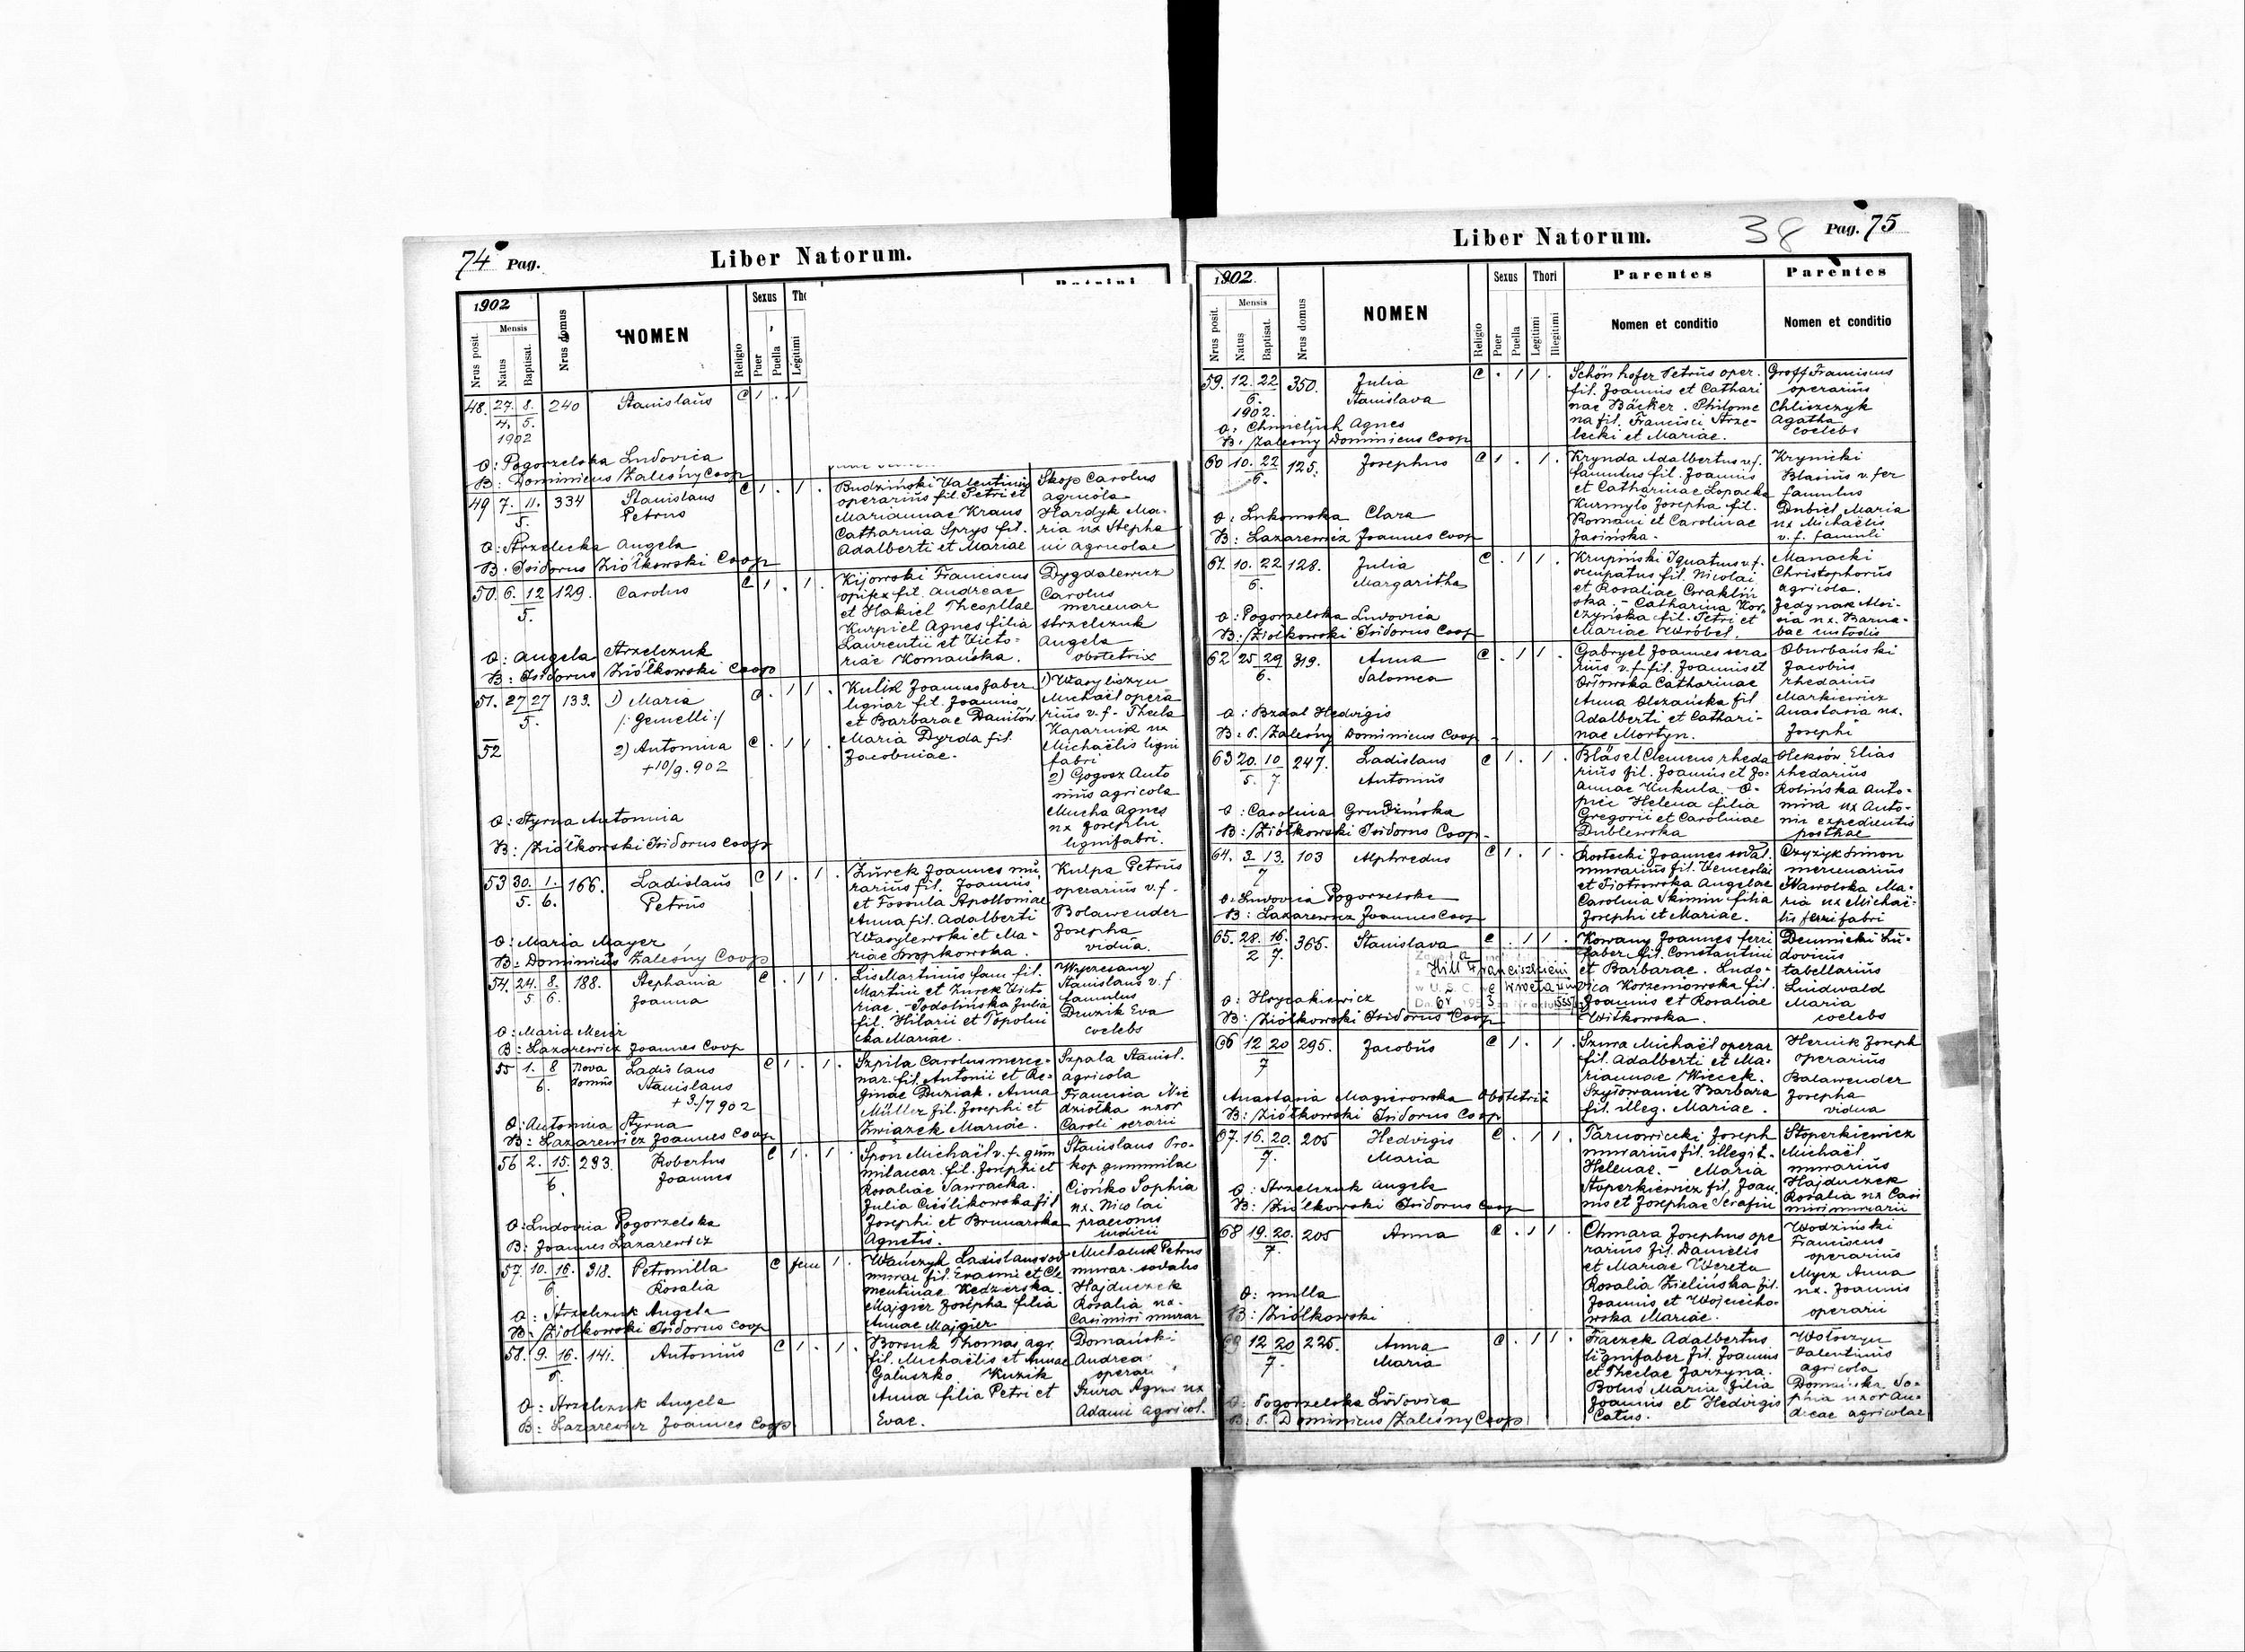 74 Pag.
Liber Natorum.
1902
Nrus posit.
Mensis
Natus
Baptisat.
Nrus domus
NOMEN
Religio
Sexus
Puer
Puella
Legitimi
48. 27. 8. 240 Stanislaus C 1 . 1
4. 5.
1902
O: Pogorzelska Ludovica
B: Dominicus Zaleśny Coop
49 7. 11. 334 Stanislaus C 1 . 1 . Budziński Valentinus Skop Carolus
5. Petrus operarius fil. Petri et agricola
Mariannae Kraus Hardyk Ma-
Catharina Sprys fil. ria ux Stepha
O: Strzelecka Angela Adalberti et Mariae ni agricolae
B. Isidorus Ziółkowski Coop
50. 6. 12 129. Carolus C 1 . 1 . Kijowski Franciscus Dygdalewicz
5. opifex fil. Andreae Carolus
et Hakiel Theophlae mercenar
Kurpiel Agnes filia Strzelczuk
Laurentii et Victo= Angela
O: Angela Strzelczuk riae Komańska. obstetrix
B: Isidorus Ziółkowski Coop
51. 27 27 133. 1) Maria C . 1 1 . Kulik Joannes faber 1) Wasyliszyn
5. /: Gemelli :/ lignar fil. Joannis Michaël opera
et Barbarae Daniłów rius v.f. - Thecla
52 2) Antonina C . 1 1 . Maria Dyrda fil. Kaparnik ux
+ 10/9. 902 Jacobinae. Michaëlis ligni
fabri
2) Gogosz Anto
nius agricola
O: Styrna Antonina Mucha Agnes
ux Josephi
B: Ziółkowski Isidorus Coop lignifabri.
53 30. 1. 166. Ladislaus C 1 . 1 . Żurek Joannes mu Kulpa Petrus
5. 6. Petrus rarius fil. Joannis operarius v.f.
et Fossula Apolloniae
Anna fil. Adalberti Bolawender
O: Maria Mayer Wasylewski et Ma- Josepha
B: Dominicus Zaleśny Coop riae vidua.
54. 24. 8. 188. Stephania C . 1 1 . Lis Martinus fam fil. Wyczesany
5 6. Joanna Martini et Żurek Victo Stanislaus v.f
riae. - Podolińska Julia famulus
O: Maria Meier fil. Hilarii et Topolni Druzik Eva
B: Lazarewicz Joannes Coop cka Mariae. coelebs
55 1. 8 Nova Ladislaus C 1 . 1 . Szpila Carolus merce- Szpala Stanisl.
6. domus Stanislaus nar. fil. Antonii et Re- agricola
+ 3./7 902 ginae Duziak. Anna Francisca Nie
Müller fil. Josephi et dziołka uxor
O: Antonina Styrna Związek Mariae. Caroli serarii
B: Lazarewicz Joannes Coop
56 2. 15. 293. Robertus C 1 . 1 . Spon Michaël v.f. gum Stanislaus Pro-
6. Joannes milaicar. fil. Josephi et kop gummilae
Rosaliae Sawracka. Cionko Sophia
Julia Cieślikowska fil ux. Nicolai
O: Ludovica Pogorzelska Josephi et Brunarska praeconis
B: Joannes Lazarewicz Agnetis. iudicii
57. 10. 16. 318. Petronilla C fem 1 . Wańczyk Ladislaus sod Michaluk Petrus
6 Rosalia murar fil. Erasmi et Cle murar. sodalis
mentinae Kedzierska. Hajduczek
O: Strzelczuk Angela Majgier Josepha filia Rosalia ux.
B: Ziółkowski Isidorus Coop Annae Majgier Casimiri murar
58. 9. 16. 141. Antonius C 1 . 1 . Borsuk Thomas agr. Domański
6. fil. Michaëlis et Annae Andrea
Gałuszko Kuzik operari
O: Strzelczuk Angela Anna filia Petri et Szura Agnes ux
B: Lazarewicz Joannes Coop Evae. Adami agricol.
Liber Natorum.
38
Pag. 75
1902.
Nrus posit.
Mensis
Natus
Baptisat.
Nrus domus
NOMEN
Religio
Sexus
Puer
Puella
Thori
Legitimi
Illegitimi
Parentes
Nomen et conditio
Parentes
Nomen et conditio
59. 12. 22 350. Julia C . 1 1 . Schönhofer Petrus oper. Groff Franciscus
6. Stanislava fil. Joannis et Cathari operarius
1902. nae Bäcker. Philome Chliszczyk
O: Chmieljuk Agnes na fil. Francisci Strze- Agatha
B: Zaleśny Dominicus Coop lecki et Mariae. coelebs
60 10. 22 125. Josephus C 1 . 1 . Krynda Adalbertus v.f. Krynicki
6. famulus fil. Joannis Blasius v. fer
et Catharinae Lopacka famulus
O: Lukomska Clara Kurmyło Josepha fil. Dubiel Maria
Romani et Carolinae ux Michaëlis
B: Lazarewicz Joannes Coop Jasińska. v.f. famuli
61. 10. 22 128. Julia C . 1 1 . Krupiński Ignatius v.f. Manacki
6. Margaritha occupatus fil. Nicolai Christophorus
et Rosaliae agricola.
O: Pogorzelska Ludovica ska. - Catharina Kor- Jedynak Aloi-
B: Ziółkowski Isidorus Coop czyńska fil. Petri et sia ux. Barna-
Mariae Wróbel. bae custodis
62 25 29 319. Anna C . 1 1 . Gabryel Joannes sera Oburbański
6. Salomea rius v.f. fil. Joannis et Jacobus
Orłowska Catharinae rhedarius
O: Bzdal Hedvigis Anna Olszańska fil Markiewicz
Adalberti et Cathari- Anastasia ux.
B: P. Zaleśny Dominicus Coop nae Mortyn. Josephi
63 20. 10 247. Ladislaus C 1 . 1 . Bläsel Clemens rheda Oleksów Elias
5. 7. Antonius rius fil. Joannis et Jo- rhedarius
annae Kukula. O- Rolińska Anto-
O: Carolina Grudzińska pric Helena filia nina ux Anto-
Gregorii et Carolinae nii expedientis
B: Ziółkowski Isidorus Coop Dublewska postkae
64. 3 13. 103 Alphredus C 1 . 1 . Rostecki Joannes sodal. Czyżyk Simon
7 murarius fil. Wenceslai mercenarius
et Piotrowska Angelae Nawolska Ma-
O: Ludovica Pogorzelska Carolina Skimin filia ria ux Michaë-
B: Lazarewicz Joannes Coop Josephi et Mariae. lis ferrifabri
65. 28. 16. 365. Stanislava C . 1 1 . Kowany Joannes ferri Demnicki Lu-
2 7. faber fil. Constantini dovicus
Hill Franciszkiem et Barbarae. Ludo- tabellarius
w U.S.C. we Wrocławiu vica Korzeniowska fil. Luidwald
O: Hrycakiewicz Joannis et Rosaliae Maria
B: Ziółkowski Isidorus Coop Witkowska. coelebs
66 12 20 295. Jacobus C 1 . 1 . Szura Michaël operar Hernik Joseph
7 fil. Adalberti et Ma- operarius
riannae Wiecek. Balawender
Anastasia Magierowska Obstetrix Szytowaniec Barbara Josepha
B: Ziółkowski Isidorus Coop fil. illeg. Mariae. vidua
67. 16. 20. 205 Hedvigis C . 1 1 . Tarnowiecki Joseph Stoperkiewicz
7. Maria murarius fil. illegit. Michaël
Helenae. - Maria murarius
O: Strzelczuk Angela Stoperkiewicz fil. Joan Hajduczek
B: Ziółkowski Isidorus Coop nis et Josephae Serafin Rosalia ux Casi
miri murarii
68 19. 20. 205 Anna C . 1 1 . Chmara Josephus ope Wodziński
7. rarius fil. Danielis Franciscus
et Mariae Wereta operarius
O: nulla Rosalia Zielińska fil. Mycz Anna
Joannis et Wojciecho- ux. Joannis
B: Ziółkowski wska Mariae. operarii
69 12 20 225. Anna C . 1 1 . Frączek Adalbertus Wołoszyn
7. Maria lignifaber fil. Joannis Valentinus
et Theclae Jarzyna. agricola
O: Pogorzelska Ludovica Bolus Maria filia Domańska So-
Joannis et Hedvigis phia uxor An-
B: P. Dominicus Zaleśny Coop Catus. dreae agricolae